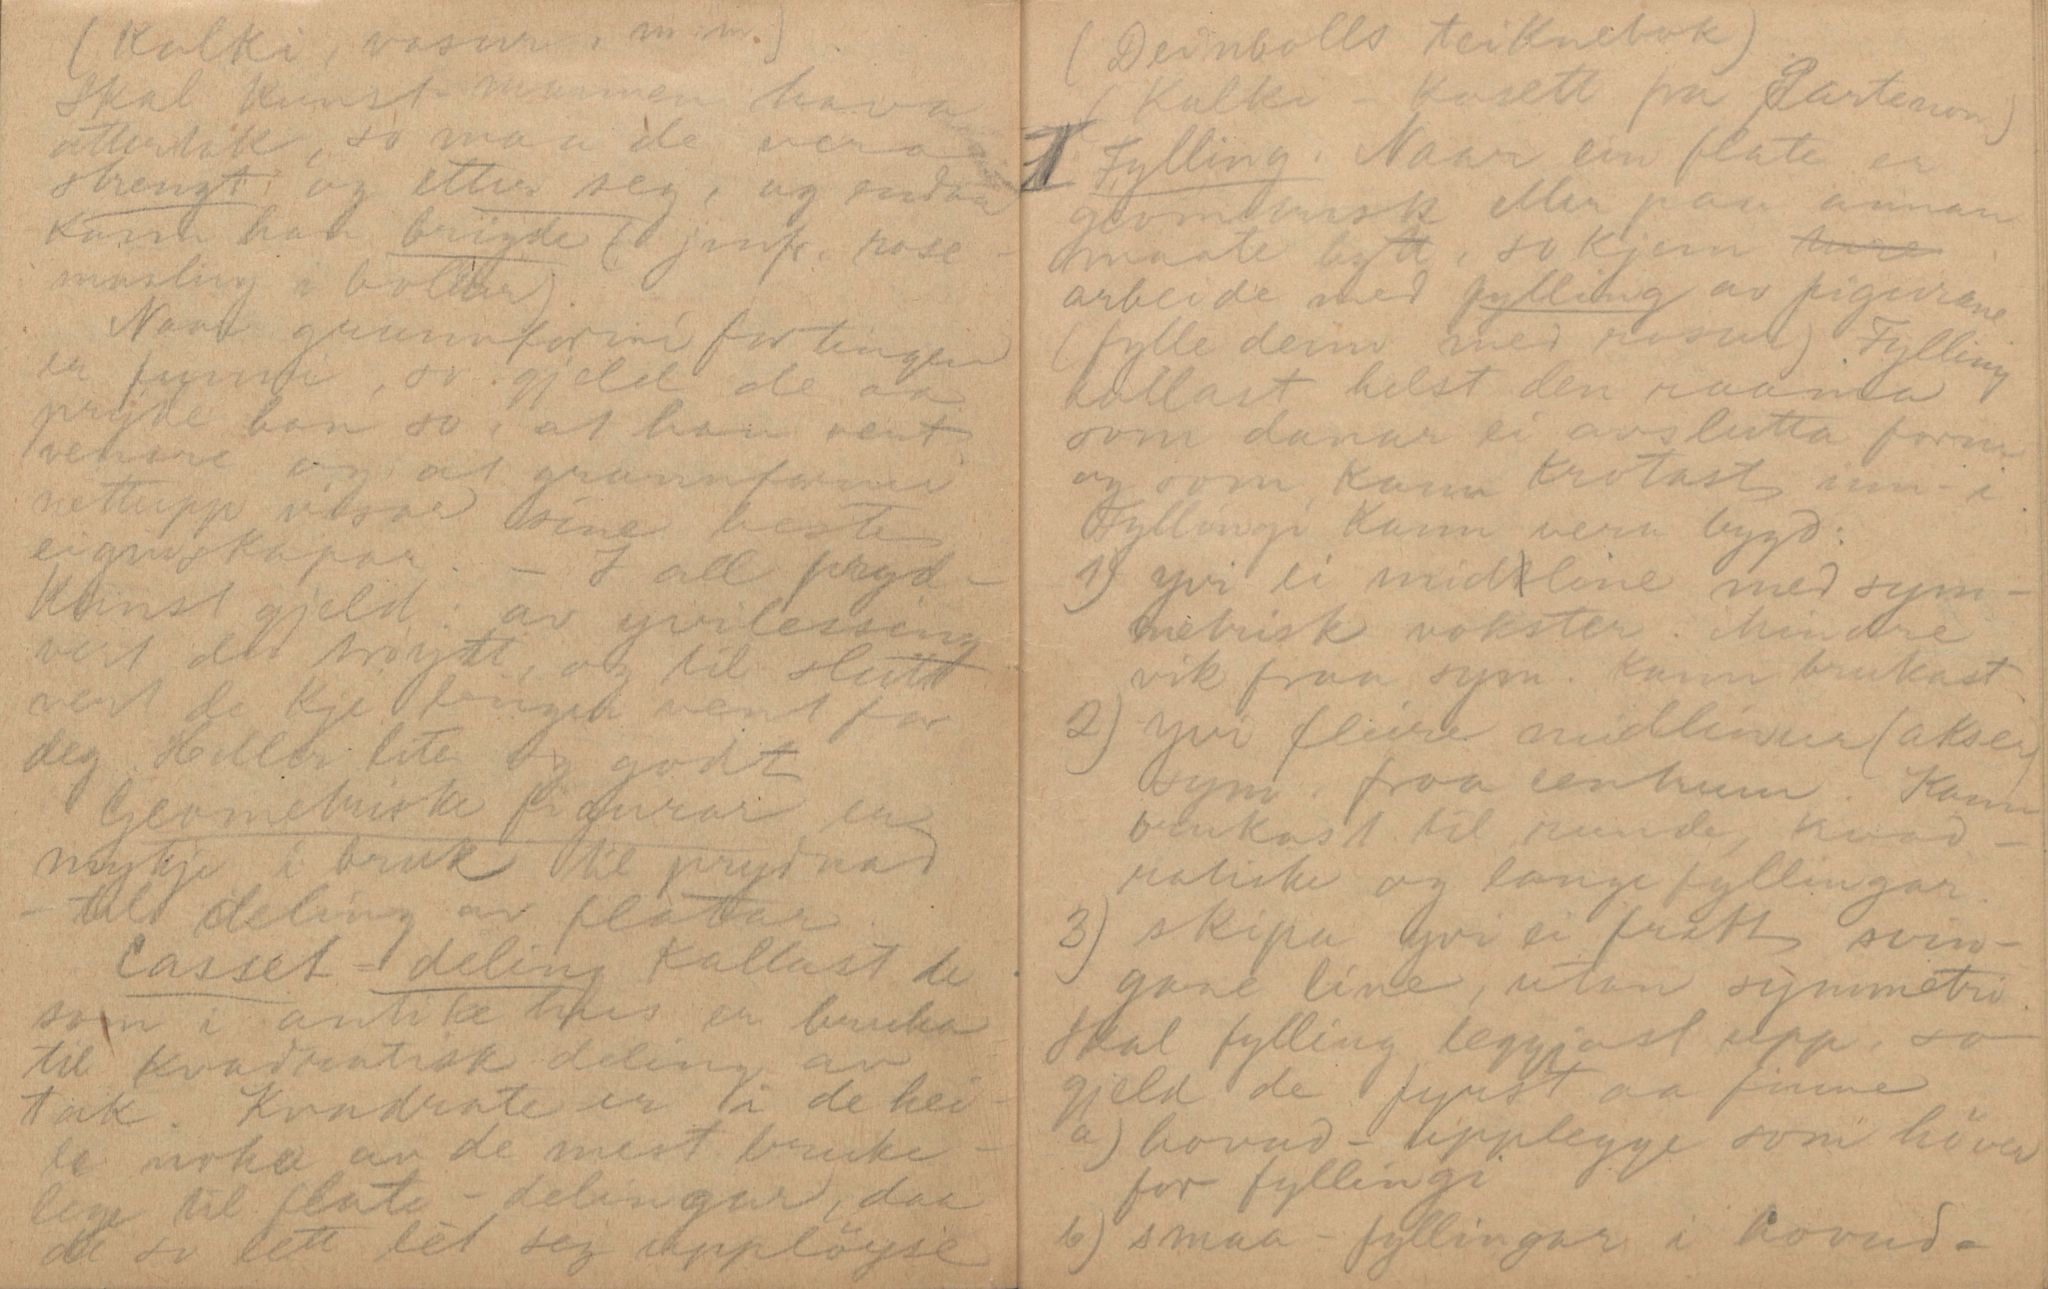 (Kalki, vasur, m.m.)
Skal kunst-maanen hava
attertak, so maa de vera
strengt og etter seg, og endaa
kann han brigde (jmf. rose-
maaling i bollar).
Naar grunnformi for tingen
er funni, so gjeld de aa
pryde han so, at han vert
venare og at grunnformi
nettupp visar sine beste
eigenskapar. – I all pryd-
kunst gjeld: av yvilessing
vert du trøytt, og til slutt
vert de kje tingen vent for
deg. Heller lite og godt
Geometriske figurar er
mykje i bruk til prydnad
– til deling av flatar.
Casset-deling kallast de
som i antike hus er bruka
til kvadratisk deling av
tak. Kvadrate er i de hei-
le noko av de mest bruke-
lege til flate-delingar, daa
de so lett let seg uppløyse
(Deinbolls teiknebok)
(Kalki – kasett fra Partenon)
I Fylling. Naar ein flate er
geometrisk eller paa annan
maate bytt, so kjem
arbeide med fylling av figurane
(fylle deim med rosur) Fylling
kallast helst den raama
som danar ei avslutta form
og som kann krotast inn-i
Fyllingi kann vera bygd:
1) yvi ei midline med sym-
metrisk vokster. Mindre
vik fraa sym. kann brukast
2) yvi fleire midlinur (akser)
sym. fraa centrum. Kann
brukast til runde, kvad-
ratiske og lange fyllingar.
3) skipa yvi ei fritt svin-
gane line, utan symmetri.
Skal fylling leggjast upp, so
gjeld de fyrst aa finne
a) hovud-upplegge som høver
for fyllingi
b) smaa-fyllingar i hovud-